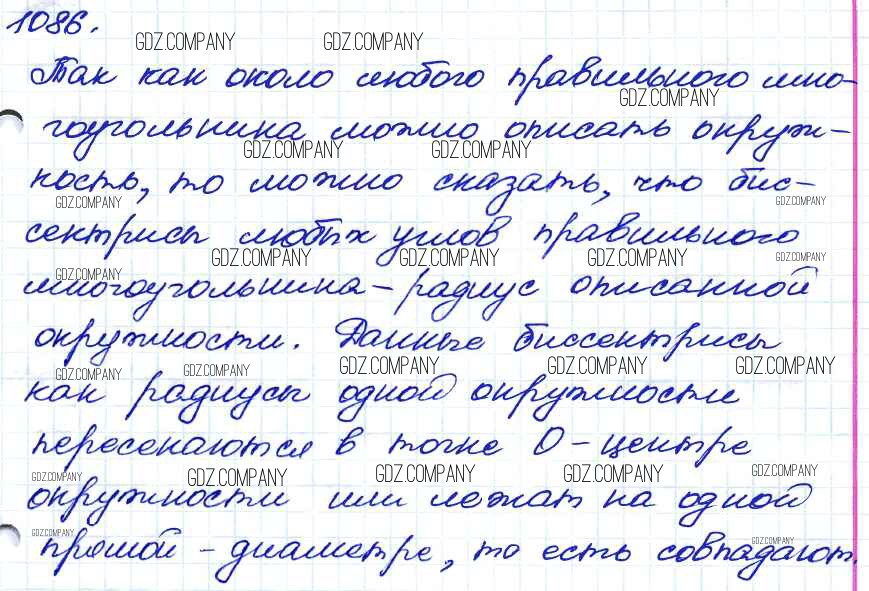 1086.
GDZ.COMPANY GDZ.COMPANY
Так как около любого правильного мно-
GDZ.COMPANY
гоугольника можно описать окруж-
GDZ.COMPANY GDZ.COMPANY
ность, то можно сказать, что бис-
GDZ.COMPANY GDZ.COMPANY
сектрисы любых углов правильного
GDZ.COMPANY GDZ.COMPANY GDZ.COMPANY GDZ.COMPANY GDZ.COMPANY
многоугольника - радиус описанной
окружности. Данные биссектрисы
GDZ.COMPANY GDZ.COMPANY GDZ.COMPANY GDZ.COMPANY GDZ.COMPANY
как радиусы одной окружности
пересекаются в точке О - центре
GDZ.COMPANY GDZ.COMPANY GDZ.COMPANY GDZ.COMPANY GDZ.COMPANY
окружности или лежат на одной
GDZ.COMPANY GDZ.COMPANY
прямой - диаметре, то есть совпадают.